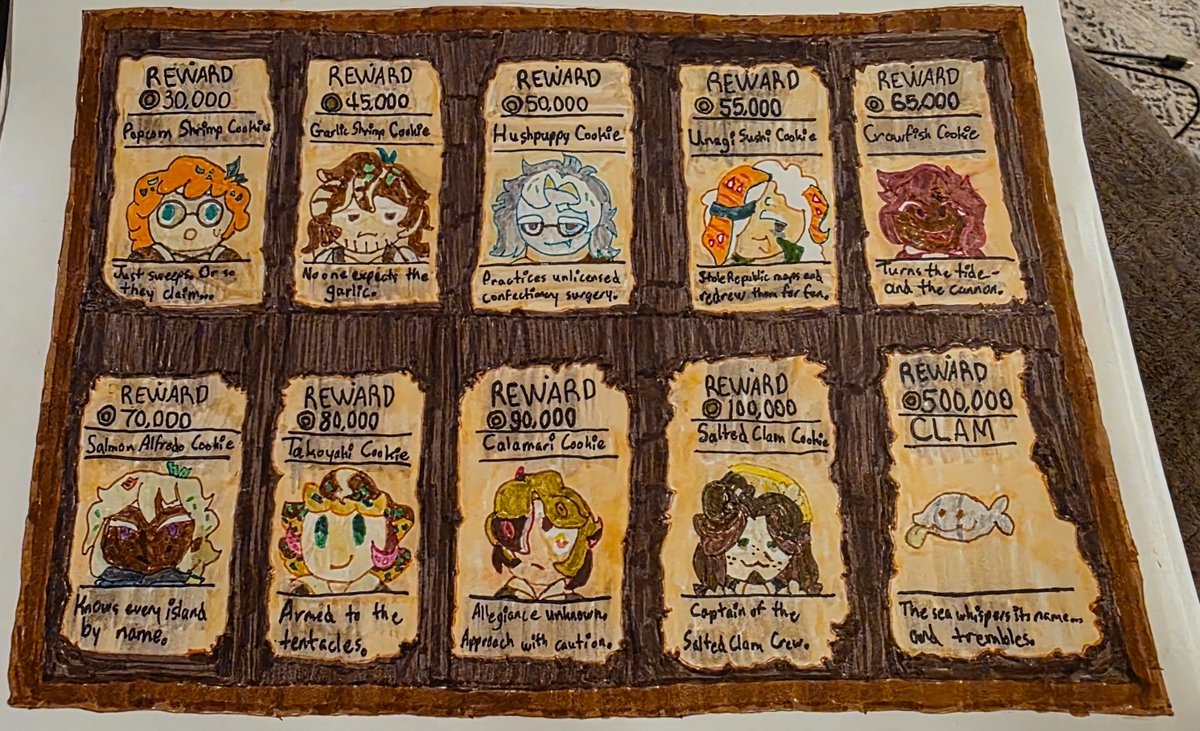 REWARD
30,000
Popcorn Shrimp Cookie
Just sweeps. Or so
they claim...
REWARD
45,000
Garlic Shrimp Cookie
No one expects the
garlic.
REWARD
50,000
Hushpuppy Cookie
Practices unlicensed
confectionary surgery.
REWARD
55,000
Unagi Sushi Cookie
Stole Republic maps and
redrew them for fun.
REWARD
65,000
Crawfish Cookie
Turns the tide-
and the cannon.
REWARD
70,000
Salmon Alfredo Cookie
Knows every island
by name.
REWARD
80,000
Takoyaki Cookie
Armed to the
tentacles.
REWARD
90,000
Calamari Cookie
Allegiance unknown.
Approach with caution.
REWARD
100,000
Salted Clam Cookie
Captain of the
Salted Clam Crew.
REWARD
500,000
CLAM
The sea whispers its name...
and trembles.